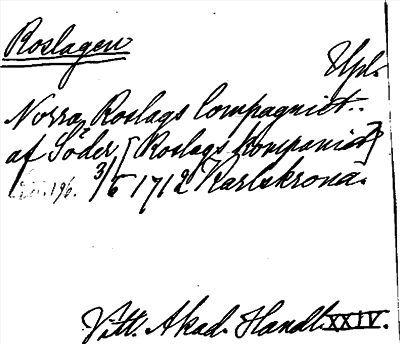 Roslagen
Upl.
Norra, Roslags Compagniet..
af Söder [Roslags kompaniet]
196. 3/6 1712 Karlskrona.
Vitt. Akad. Handl. XXIV.